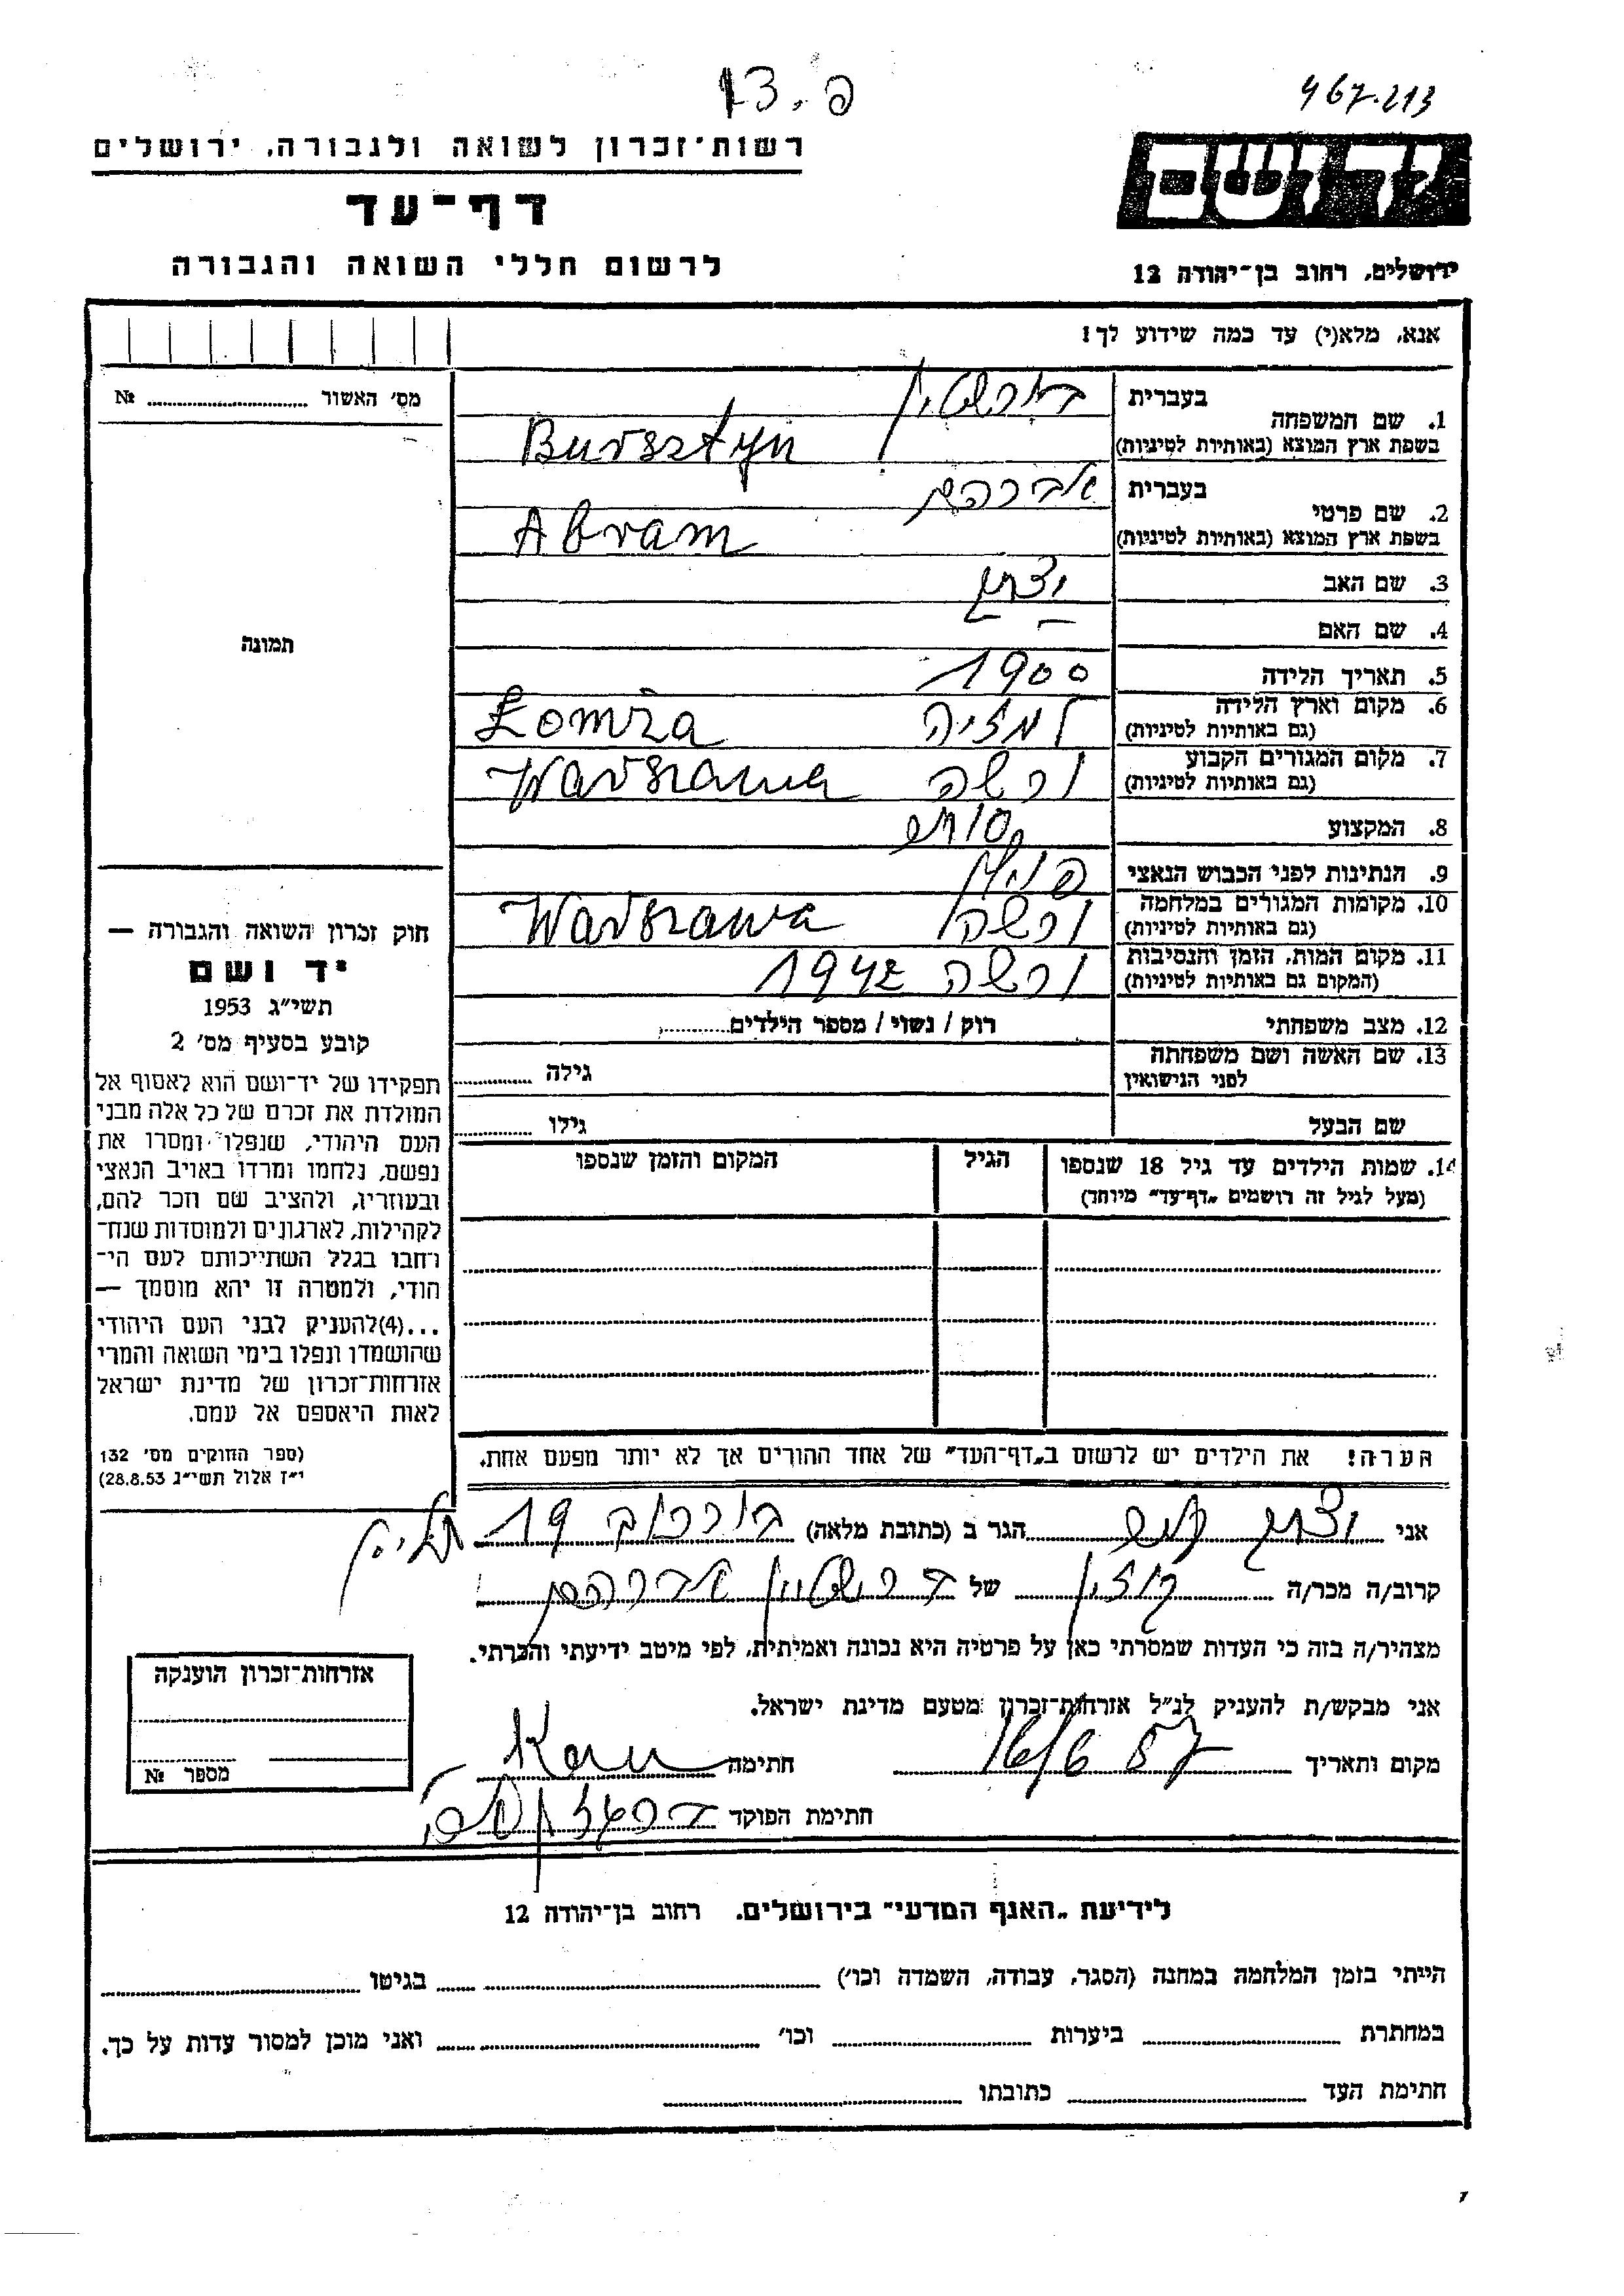 פ. 13
467.213
רשות־זכרון לשואה ולגבורה, ירושלים
דף־עד
לרשום חללי השואה והגבורה
יד ושם
ירושלים, רחוב בן־יהודה 12
אנא, מלא(י) עד כמה שידוע לך!
מס׳ האשור № ........
1. שם המשפחה בעברית בורשטין
בשפת ארץ המוצא (באותיות לטיניות) Bursztyn
2. שם פרטי בעברית אברהם
בשפת ארץ המוצא (באותיות לטיניות) Abram
3. שם האב יצחק
4. שם האם —
5. תאריך הלידה 1900
6. מקום וארץ הלידה
(גם באותיות לטיניות) Łomża
7. מקום המגורים הקבוע ורשה
(גם באותיות לטיניות) Warszawa
8. המקצוע סוחר
9. הנתינות לפני הכבוש הנאצי פולין
10. מקומות המגורים במלחמה ורשה
(גם באותיות לטיניות) Warszawa
11. מקום המות, הזמן והנסיבות ורשה 1942
(המקום גם באותיות לטיניות)
12. מצב משפחתי רוק / נשוי / מספר הילדים........
13. שם האשה ושם משפחתה
לפני הנישואין גילה ........
שם הבעל גילו ........
14. שמות הילדים עד גיל 18 שנספו
(מעל לגיל זה רושמים „דף־עד״ מיוחד)
הגיל
המקום והזמן שנספו
תמונה
חוק זכרון השואה והגבורה —
יד ושם
תשי״ג 1953
קובע בסעיף מס׳ 2
תפקידו של יד־ושם הוא לאסוף אל
המולדת את זכרם של כל אלה מבני
העם היהודי, שנפלו ומסרו את
נפשם, נלחמו ומרדו באויב הנאצי
ובעוזריו, ולהציב שם וזכר להם,
לקהילות, לארגונים ולמוסדות שנח־
רחבו בגלל השתייכותם לעם הי־
הודי, ולמטרה זו יהא מוסמך —
...(4)להעניק לבני העם היהודי
שהושמדו ונפלו בימי השואה והמרי
אזרחות־זכרון של מדינת ישראל
לאות היאספם אל עמם.
(ספר החוקים מס׳ 132
י״ז אלול תשי״ג 28.8.53)
הערה! את הילדים יש לרשום ב„דף־העד״ של אחד ההורים אך לא יותר מפעם אחת.
אני יצחק הגר ב (כתובת מלאה) בורכוב 19
קרוב/ה מכר/ה של בורשטין אברהם
מצהיר/ה בזה כי העדות שמסרתי כאן על פרטיה היא נכונה ואמיתית, לפי מיטב ידיעתי והכרתי.
אני מבקש/ת להעניק לנ״ל אזרחות־זכרון מטעם מדינת ישראל.
מקום ותאריך 16/6 57 חתימה
חתימת הפוקד
אזרחות־זכרון הוענקה
מספר №
לידיעת „האגף המדעי״ בירושלים. רחוב בן־יהודה 12
הייתי בזמן המלחמה במחנה (הסגר, עבודה, השמדה וכו׳) ........ בגיטו ........
במחתרת ........ ביערות ........ וכו׳ ........ ואני מוכן למסור עדות על כך.
חתימת העד ........ כתובתו ........